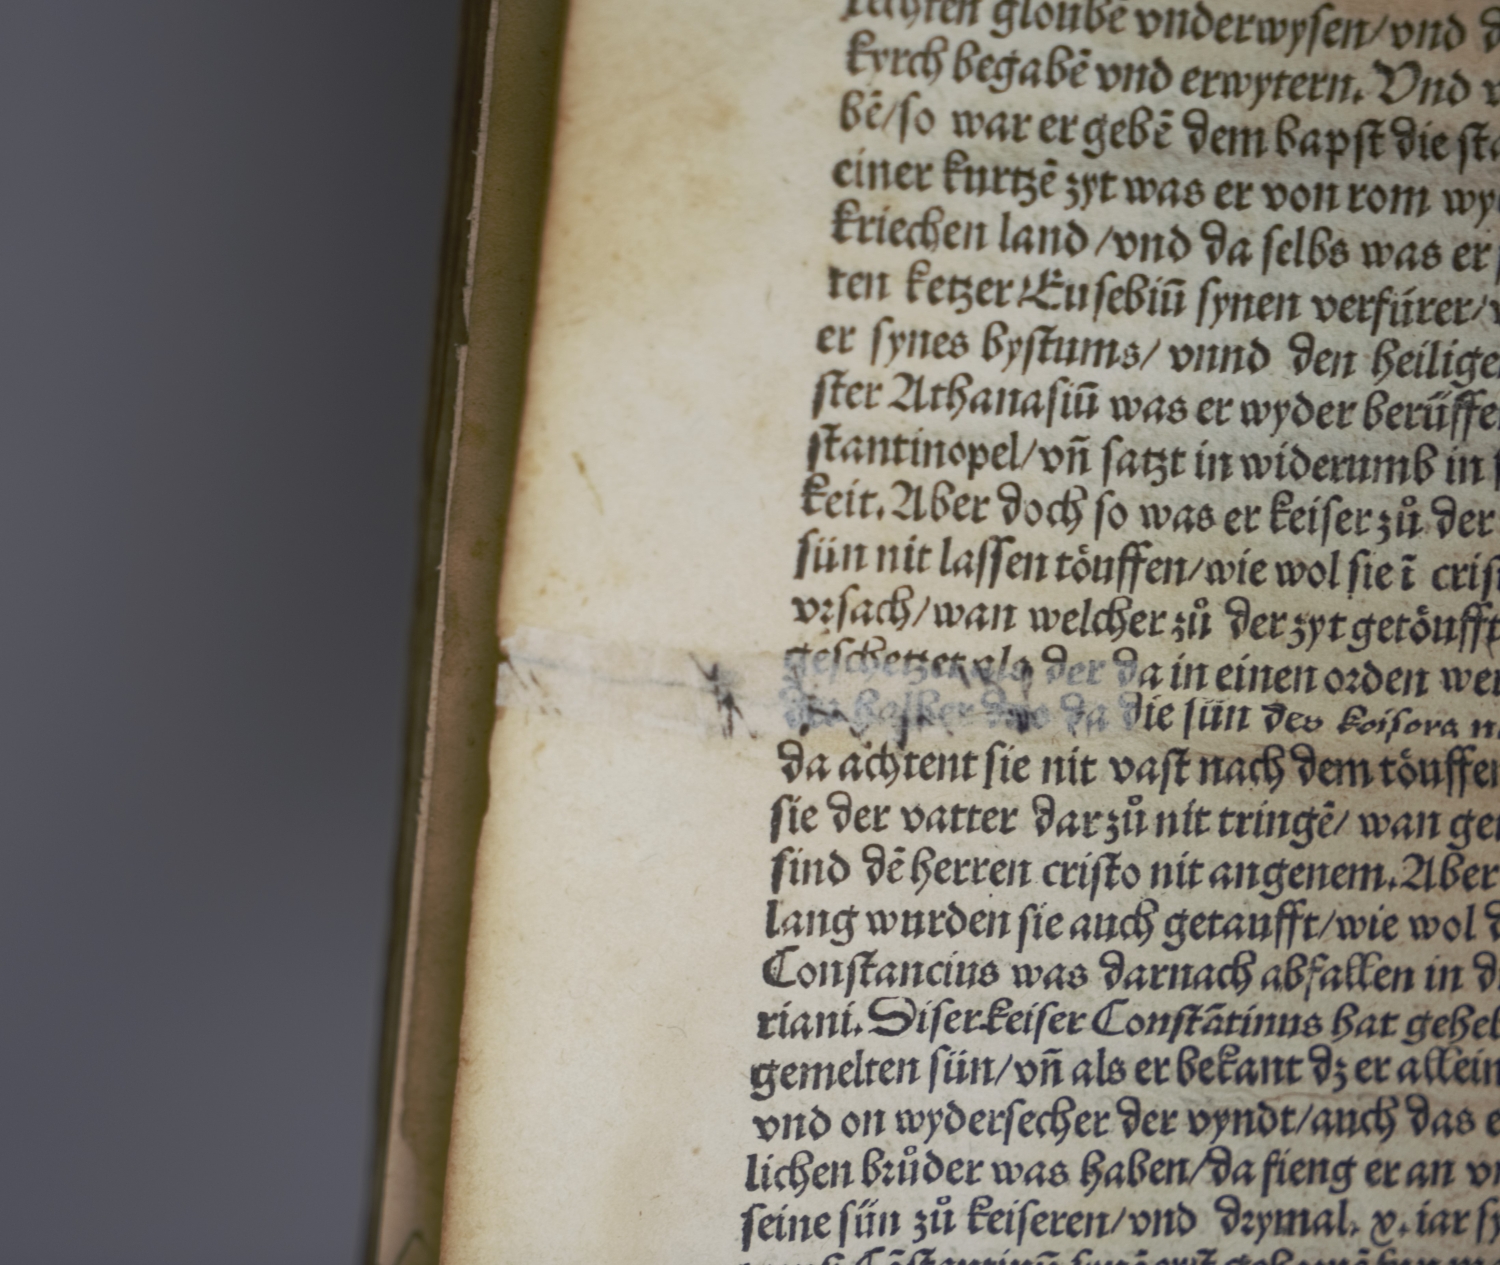 rechten gloubē vnderwysen/vnd
kyrch begabē vnd erwytern. Vnd
bē/so war er gebē dem bapſt die
einer kurtzē zyt was er von rom
kriechen land /vnd da ſelbs was er
ten ketzer/Euſebiū ſynen verfürer/
er ſynes byſtums/ vnnd den heilige
ſter Athanaſiū was er wyder berüffe
ſtantinopel/vn̄ ſatzt in widerumb in
keit. Aber doch ſo was er keiſer zů der
ſün nit laſſen töuffen/wie wol ſie ī criſ
vrſach/wan welcher zů der zyt getöufft
geſchetzet als der da in einen orden wer
da die ſün des keiſers
da achtent ſie nit vaſt nach dem töuffen
ſie der vatter darzů nit tringē/ wan
ſind dē herren criſto nit angenem. Aber
lang wurden ſie auch getaufft/wie wol
Conſtancius was darnach abfallen in
riani. Diſer keiſer Conſtātinus hat gehe
gemelten ſün/vn̄ als er bekant dz er allein
vnd on wyderſecher der vyndt/auch das
lichen brůder was haben/da fieng er an
ſeine ſün zů keiſeren/vnd drymal. x. iar